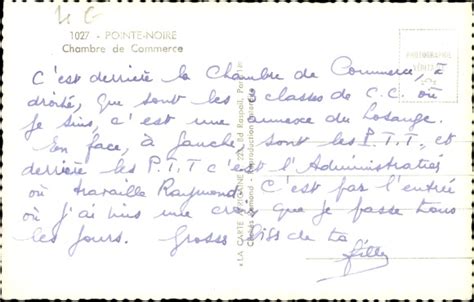 4 G
1027 - POINTE-NOIRE
Chambre de Commerce
PHOTOGRAPHIE
VÉRITABLE
C'est derrière la Chambre de Commerce, à
droite, que sont les classes de C.C. où
je suis, c'est une annexe du Losange.
En face, à gauche, sont les P.T.T, et
derrière les P.T.T c'est l'Administratif
où travaille Raymond. C'est par l'entrée
où j'ai mis une croix que je passe tous
les jours. Grosses biss de ta
filly
«LA CARTE AFRICAINE» Bd Raspail, Paris
Reproduction